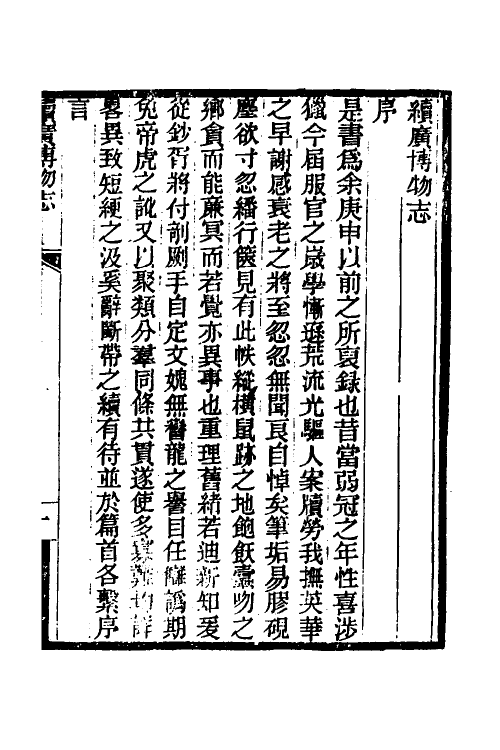 續廣博物志
序
是書爲余庚申以前之所裒錄也昔當弱冠之年性喜涉
獵今屆服官之歲學慚遜荒流光驅人案牘勞我撫英華
之早謝感衰老之將至忽忽無聞良自悼矣筆垢易膠硯
塵欲寸忽繙行篋見有此帙縱橫鼠跡之地飽飫蠹吻之
鄉貪而能廉冥而若覺亦異事也重理舊緒若迪新知爰
從鈔胥將付剞劂手自定文媿無雕龍之譽目任讎譌期
免帝虎之訛又以聚類分羣同條共貫遂使多寡
畧異致短綆之汲奚辭斷帶之續有待並於篇首各繫序
言
續廣博物志
一